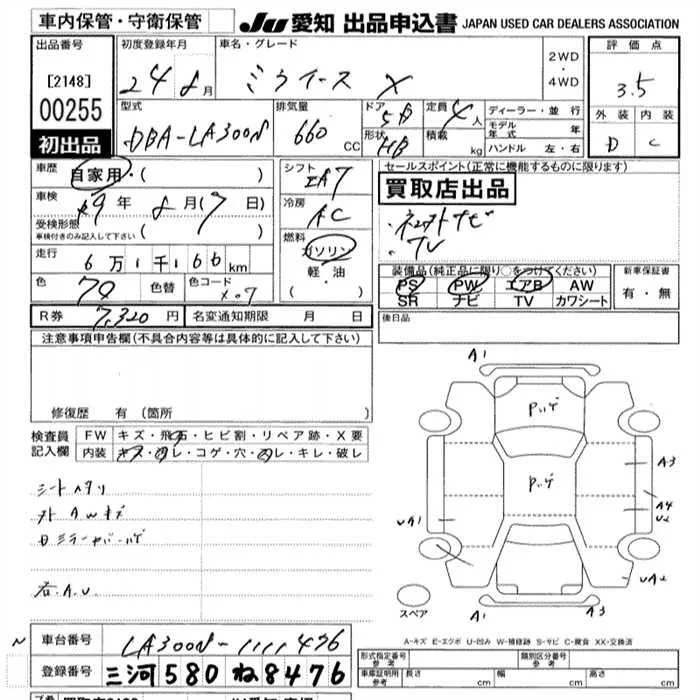 車内保管・守衛保管
JU 愛知 出品申込書 JAPAN USED CAR DEALERS ASSOCIATION
出品番号 初度登録年月 車名・グレード 2WD・4WD 評価点
[2148] 24年8月 ミライース X 3.5
00255 型式 排気量 ドア 5D 定員 4人 ディーラー・並行 外装 内装
初出品 DBA-LA300S 660 CC 形状 HB 積載 kg モデル年式 年 ハンドル 左・右 D C
車歴 自家用・( ) シフト IA7 セールスポイント(正常に機能するものに限ります)
車検 29年8月(7日) 冷房 AC 買取店出品
受検形態 車検付きのみ記入して下さい ( ) 燃料 ・ナビ
走行 6万1千166km ガソリン ・TV
軽油 装備品(純正品に限り○をつけてください) 新車保証書
色 色替 色コード ( ・ ) PS PW エアB AW 有・無
X07 SR ナビ TV カワシート
R券 7,320円 名変通知期限 月 日 後日品
注意事項申告欄(不具合内容等は具体的に記入して下さい)
修復歴 有(箇所
検査員記入欄 FW キズ・飛石・ヒビ割・リペア跡・X要
内装 キズ・汚レ・コゲ・穴・スレ・キレ・破レ
シートスタリ
外 AWキズ
右.A.U
A1
Pハゲ
Pハゲ
A3
A4
U2
UA1
UA2
A1
A3
スペア
A-キズ E-エクボ U-凹み W-補修跡 S-サビ C-腐食 XX-交換済
車台番号 LA300S-1111476 形式指定番号 参考 類別区分番号 参考
登録番号 三河580ね8476 車庫証明用 参考 長さ cm 幅 cm 高さ cm